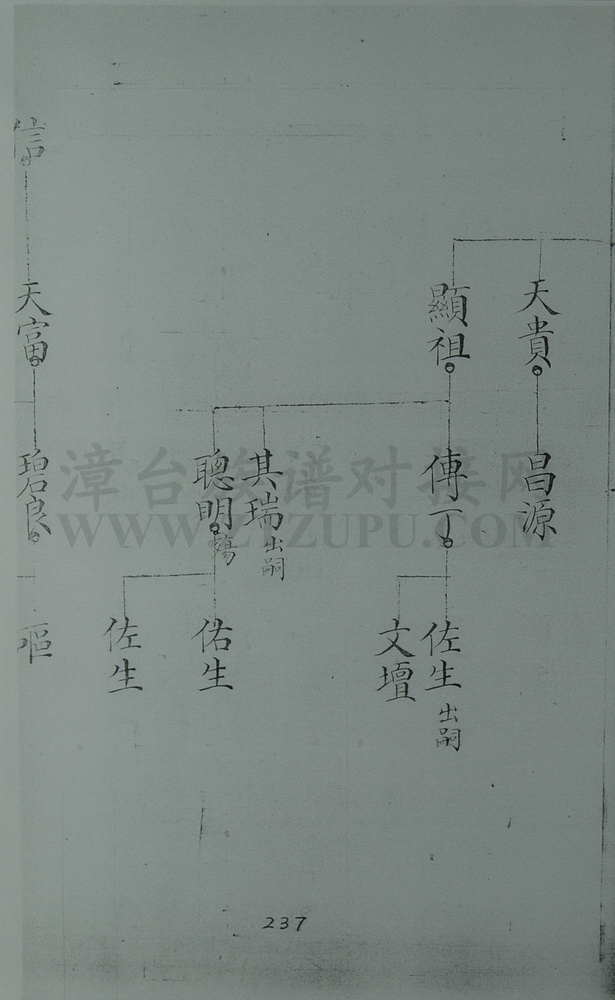 天貴
昌源
顯祖
傳丁
佐生 出嗣
文壇
其瑞 出嗣
聰明 殤
佑生
佐生
信
天富
碧良
漳台族谱对接网
WWW.ZTZUPU.COM
237